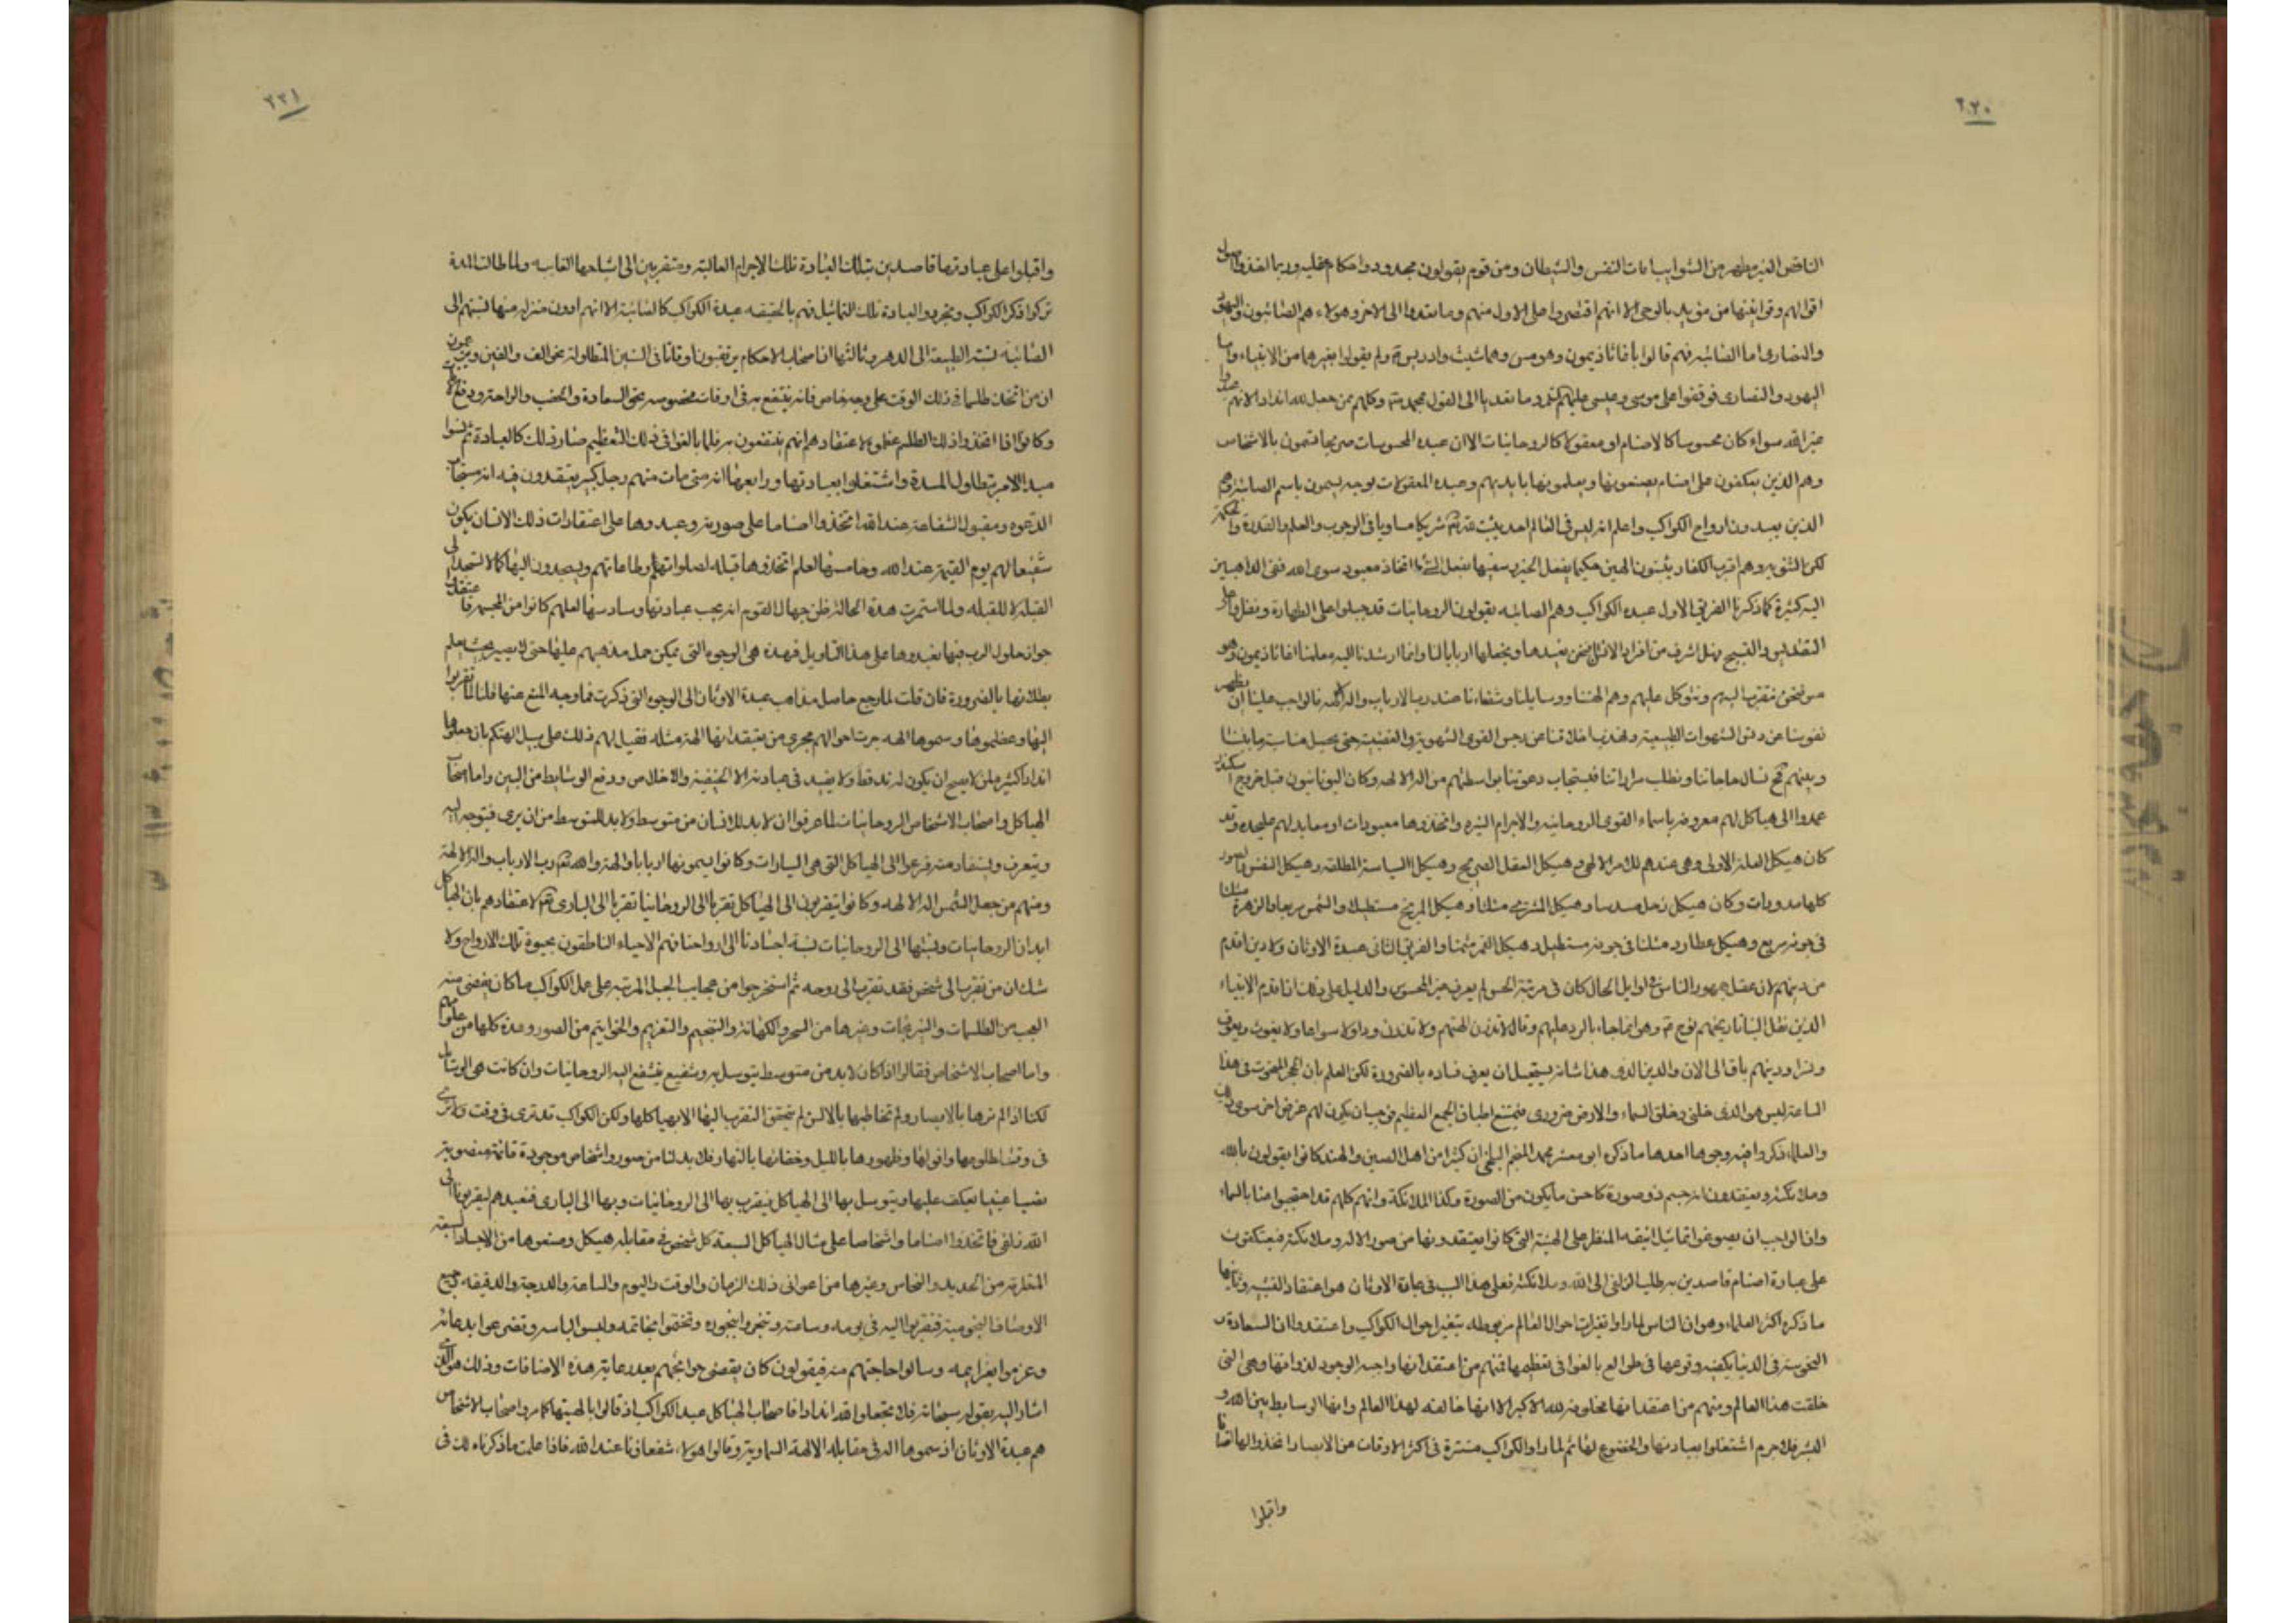 ٢٢٠
الناقص الغير مطهر من الشوايب امات النفس والشيطان ومن قوم يقولون بحدود واحكام عقليه وربما اخذوا اصول
اقوالهم وقوانينها من مؤيد بالوحى الا انهم اقتصروا على الاول منهم وما تعدوا الى الاخر وهولاء هم الصائبون واليهود
والنصارى اما الصائبه فهم قالوا باغاثاذيمون وهرمس وهما شيث وادريس ولم يقولوا بغيرهما من الانبياء واما
اليهود والنصارى فوقفوا على موسى وعيسى وما تعديا الى القول بمحمد وكلهم ممن جعل لله اندادا لانهم عبدوا
غير الله سواء كان محسوسا كالاصنام او معقولا كالروحانيات الا ان عبدة المحسوسات صريحا قيمون بالاشخاص
وهم الذين يعكفون على اصنام يصنعونها ويعلمونها بايديهم وعبدة المعقولات بوجه يسمون باسم الصائبه وهم
الذين يعبدون ارواح الكواكب واعلم انه ليس فى العالم احد يثبت لله شريكا مساويا فى الوجوب والعلم والقدرة والحكمة
لكن الثنويه وهم اقرب الكفار يثبتون الهين حكيما يفعل الخير وسفيها يفعل الشر اما اتخاذ معبود سوى الله ففى الذاهبين
اليه كثرة كما ذكرنا الفريق الاول عبدة الكواكب وهم الصائبه يقولون الروحانيات قد جبلوا على الطهارة ونظروا على
التقديس والتسبيح فهل اشرف من افراد الانسان نحن نعبدها ونجعلها اربابا لنا وانما ارشدنا اليه معلمنا اغاثاذيمون وهر
مس فنحن نتقرب اليهم ونتوكل عليهم وهم الهتنا ووسايلنا وشفعاءنا عند رب الارباب واله الالهه فالواجب علينا ان نطهر
نفوسنا عن دنس الشهوات الطبيعيه ونهذب اخلاقنا عن رجس القوى الشهويه والغضبيه حتى يحصل مناسبة ما بيننا
وبينهم ثم نسال حاجاتنا ونطلب مراداتنا فيستجاب دعوتنا بواسطتهم من اله الالهه وكان اليونانيون قبل خروج اسكندر
عمدوا الى هياكل لهم معروفه باسماء القوى الروحانيه والاجرام النيره واتخذوها معبودات او معابد لهم عليحده وقد
كان هيكل العلة الاولى وهى عندهم للامر الالهى وهيكل العقل الصريح وهيكل السياسة المطلقه وهيكل النفس والصور
كلها مدورات وكان هيكل زحل مسدسا وهيكل المشترى مثلثا وهيكل المريخ مستطيلا والشمس مربعا والزهرة مثلثا
فى جوفه مربع وهيكل عطارد مثلثا فى جوفه مستطيل وهيكل القمر مثمنا والفريق الثانى عبدة الاوثان ولا دين اقدم
من دينهم لان عقل جمهور الناس فى اوايل الحال كان فى مرتبة الحس لم يعرف غير المحسوس والدليل على ذلك ان اقدم الانبياء
الذين نقل الينا تاريخهم نوح وهو انما جاء بالرد عليهم وقال لا تذرن الهتكم ولا تذرن ودا ولا سواعا ولا يغوث ويعوق
ونسرا ودينهم باق الى الان والدين الذى هذا شانه يستحيل ان يعرف فساده بالضرورة لكن العلم بان الحجر المنحوت فى هذا
الساعة ليس هو الذى خلقنى وخلق السماء والارض ضرورى فيمتنع اطباق الجمع العظيم فيجب ان يكون لهم غرض اخر سوى ذلك
والعلماء ذكروا فيه وجوها احدها ما ذكره ابو معشر محمد المنجم البلخى ان كثيرا من اهل الصين والهند كانوا يقولون بالله
وملائكته ويعتقدون انه جسم ذو صورة كاحسن ما يكون من الصورة وكذا الملائكة وانهم كلهم قد احتجبوا عنا بالسماء
وان الواجب ان يصوغوا تماثيل انيقه المنظر على الهيئة التى كانوا يعتقدونها من صور الاله وملائكته فيعتكفون
على عبادة اصنام قاصدين به طلب الزلفى الى الله وملائكته فعلى هذا السبب فى عبادة الاوثان هو اعتقاد التشبيه وثانيها
ما ذكره اكثر العلماء وهو ان الناس لما راوا تغيرات احوال العالم مربوطه بتغير احوال الكواكب واعتقدوا ان السعادة و
النحوسه فى الدنيا بكيفيه وقوعها فى طوالع بالغوا فى تعظيمها فمنهم من اعتقد انها واجبه الوجود لذواتها وهى التى
خلقت هذا العالم ومنهم من اعتقد انها مخلوقه لله الاكبر الا انها خالقه لهذا العالم وانها الوسايط بين الله و
البشر فلا جرم اشتغلوا بعبادتها والخضوع لها ثم لما راوا الكواكب مستترة فى اكثر الاوقات من الابصار اتخذوا لها اصناما
واقبلوا
٢٢١
واقبلوا على عبادتها قاصدين بتلك العبادة تلك الاجرام العاليه ومتقربين الى اشباحها الغايبه ولما طالت المدة
تركوا ذكر الكواكب وتجردوا لعبادة تلك التماثيل فهم بالحقيقه عبدة الكواكب كالصائبة الا انهم ادون منزله منها نسبتهم الى
الصائبه نسبة الطبيعه الى الدهريه وثالثها ان اصحاب الاحكام يرتقبون اوقاتا فى السنين المتطاوله نحو الف والفين ويزعمون
ان من اتخذ طلسما فى ذلك الوقت على وجه خاص فانه ينتفع به فى اوقات مخصوصه نحو السعادة والخصب والراحة ودفع الافات
وكانوا اذا اتخذوا ذلك الطلسم عظموه لاعتقادهم انهم ينتفعون به فلما بالغوا فى ذلك التعظيم صار ذلك كالعبادة ثم نسوا
مبدا الامر بتطاول المدة واشتغلوا بعبادتها ورابعها انه متى مات منهم رجل كبير يعتقدون فيه انه مستجاب
الدعوه ومقبول الشفاعه عند الله اتخذوا اصناما على صورته وعبدوها على اعتقادات ذلك الانسان يكون
شفيعا لهم يوم القيمه عند الله وخامسها لعلهم اتخذوها قبله لصلواتهم وطاعاتهم ويسجدون اليها كما لا نسجد الى
القبله لا للقبله ولما استمرت هذه الحاله ظن جهال القوم انه يجب عبادتها وسادسها لعلهم كانوا من المجسمه فاعتقدوا
جواز حلول الرب فيها فعبدوها على هذا التاويل فهذه هى الوجوه التى يمكن حمل مذهبهم عليها حتى لا يصير بحيث يعلم
بطلانها بالضرورة فان قلت لما رجع حاصل مذاهب عبدة الاوثان الى الوجوه التى ذكرت فما وجه المنع عنها قلنا لما تقربوا
اليها وعظموها وسموها الهه جرت احوالهم مجرى من يعتقد انها الهة مثله فقيل لهم ذلك على سبيل التهكم بان جعلوا
اندادا كثيره لمن لا يصح ان يكون له ند قط ولا يفيد فى عبادته الا الحنيفيه والاخلاص ورفع الوسايط من البين واما اصحاب
الهياكل واصحاب الاشخاص الروحانيات لما عرفوا ان لا بد للانسان من متوسط ولا بد للمتوسط من ان يرى فيتوجه اليه
ويتعرف ويستفاد منه فزعوا الى الهياكل التى هى السيارات وكانوا يسمونها اربابا والهة والله رب الارباب واله الالهة
ومنهم من جعل الشمس اله الالهه وكانوا يتقربون الى الهياكل تقربا الى الروحانيات تقربا الى البارى لاعتقادهم بان الهياكل
ابدان الروحانيات ونسبتها الى الروحانيات نسبة اجسادنا الى ارواحنا فهم الاحياء الناطقون بحيوة تلك الارواح ولا
شك ان من تقرب الى شخص فقد تقرب الى روحه ثم استخرجوا من عجايب الحيل المرتبه على عمل الكواكب ما كان يقضى منه
العجب من الطلسمات والنيرنجات وغيرها من السحر والكهانة والتنجيم والتعزيم والخواتيم من الصور وهذه كلها من علومهم
واما اصحاب الاشخاص فقالوا اذا كان لا بد من متوسط يتوسل به وشفيع يتشفع اليه الروحانيات وان كانت هى الوسايل
لكنا اذا لم نرها بالابصار ولم تخاطبها بالالسن لم يتحقق التقرب اليها الا بهياكلها ولكن الكواكب قد ترى فى وقت ولا ترى
فى وقت لطلوعها وافولها وظهورها بالليل وخفائها بالنهار فلا بد لنا من صور واشخاص موجودة قائمه منصوبة
نصب اعيننا نعكف عليها ونتوسل بها الى الهياكل فنتقرب بها الى الروحانيات وبها الى البارى فنعبدهم ليقربونا الى
الله زلفى فاتخذوا اصناما واشخاصا على مثال الهياكل السبعة كل شخص فى مقابله هيكل وصنعوها من الاجساد السبعه
من الحديد والنحاس وغيرها مراعوا فى ذلك الزمان والوقت واليوم والساعة والدرجة والدقيقه وجميع
الاوصاف النجوميه فتقربوا اليه فى يومه وساعته وتبخروا ببخوره وتختموا بخاتمه ولبس الباسه وتضرعوا بدعائه
وعزموا بعزايمه وسالوا حاجتهم منه فيقولون كان يقضى حوائجهم بعد رعاية هذه الاضافات وذلك هو الذى
اشار اليه بقوله سبحانه فلا تجعلوا لله اندادا فاصحاب الهياكل عبدة الكواكب اذ قالوا بالهيتها كما مر واصحاب الاشخاص
هم عبدة الاوثان اذ سموها الهة فى مقابله الالهة السماويه وقالوا هولاء شفعاؤنا عند الله فاذا علمت ما ذكرناه لك فى